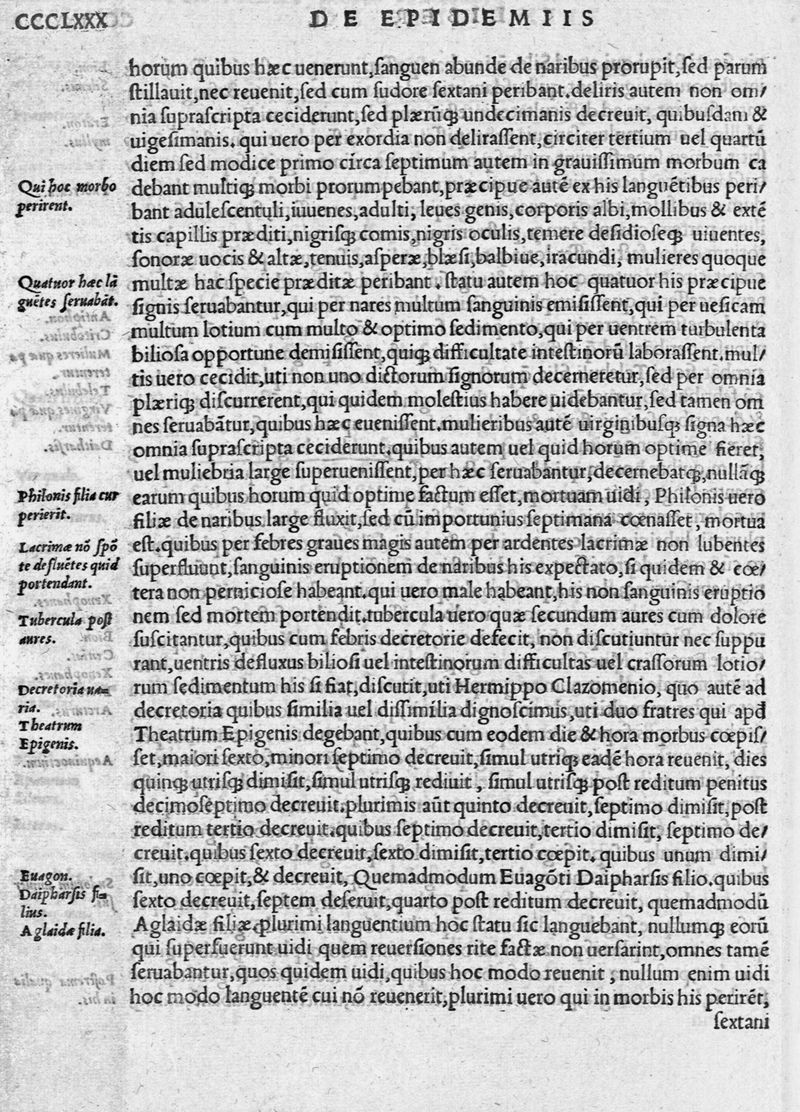 CCCLXXX
DE EPIDEMIIS
horum quibus hæc uenerunt,ſanguen abunde de naribus prorupit,ſed parum
ſtillauit,nec reuenit,ſed cum ſudore ſextani peribant.deliris autem non om/
nia ſupraſcripta ceciderunt,ſed plærūqꝫ undecimanis decreuit, quibuſdam &
uigeſimanis. qui uero per exordia non deliraſſent,circiter tertium uel quartū
diem ſed modice primo circa ſeptimum autem in grauiſſimum morbum ca
Qui hoc morbo
perirent.
debant multiqꝫ morbi prorumpebant,præcipue autē ex his languētibus peri/
bant aduleſcentuli,iuuenes,adulti, leues genis,corporis albi,mollibus & extē
tis capillis præditi,nigriſqꝫ comis,nigris oculis,temere deſidioſeqꝫ uiuentes,
ſonoræ uocis & altæ,tenuis,aſperæ,blæſi,balbiue,iracundi, mulieres quoque
Quatuor hæc lā
guētes ſeruabāt.
multæ hac ſpecie præditæ peribant. ſtatu autem hoc quatuor his præcipue
ſignis ſeruabantur,qui per nares multum ſanguinis emiſiſſent,qui per ueſicam
multum lotium cum multo & optimo ſedimento,qui per uentrem turbulenta
bilioſa opportune demiſiſſent,quiqꝫ difficultate inteſtinorū laboraſſent.mul/
tis uero cecidit,uti non uno dictorum ſignorum decerneretur,ſed per omnia
plæriqꝫ diſcurrerent,qui quidem moleſtius habere uidebantur,ſed tamen om
nes ſeruabātur,quibus hæc eueniſſent.mulieribus autē uirginibuſqꝫ ſigna hæc
omnia ſupraſcripta ceciderunt.quibus autem uel quid horum optime fieret,
uel muliebria large ſuperueniſſent,per hæc ſeruabantur,decernebatqꝫ,nullāqꝫ
Philonis filia cur
perierit.
earum quibus horum quid optime factum eſſet,mortuam uidi, Philonis uero
filiæ de naribus large fluxit,ſed cū importunius ſeptimana cœnaſſet, mortua
Lacrimæ nō ſpō
te defluētes quid
portendant.
eſt.quibus per febres graues magis autem per ardentes lacrimæ non lubentes
ſuperfluunt,ſanguinis eruptionem de naribus his expectato,ſi quidem & cœ/
tera non pernicioſe habeant.qui uero male habeant,his non ſanguinis eruptio
Tubercula poſt
aures.
nem ſed mortem portendit.tubercula uero quæ ſecundum aures cum dolore
ſuſcitantur,quibus cum febris decretorie defecit, non diſcutiuntur nec ſuppu
rant,uentris defluxus bilioſi uel inteſtinorum difficultas uel craſſorum lotio/
Decretoria ua=
ria.
rum ſedimentum his ſi fiat,diſcutit,uti Hermippo Clazomenio, quo autē ad
decretoria quibus ſimilia uel diſſimilia dignoſcimus,uti duo fratres qui apd
Theatrum
Epigenis.
Theatrum Epigenis degebant,quibus cum eodem die & hora morbus cœpiſ/
ſet,maiori ſexto,minori ſeptimo decreuit,ſimul utriqꝫ eadē hora reuenit, dies
quinqꝫ utriſqꝫ dimiſit,ſimul utriſqꝫ rediuit , ſimul utriſqꝫ poſt reditum penitus
decimoſeptimo decreuit.plurimis aūt quinto decreuit,ſeptimo dimiſit,poſt
reditum tertio decreuit.quibus ſeptimo decreuit,tertio dimiſit, ſeptimo de/
creuit.quibus ſexto decreuit,ſexto dimiſit,tertio cœpit. quibus unum dimi/
Euagon.
Daipharſis fi=
lius.
ſit,uno cœpit,& decreuit, Quemadmodum Euagōti Daipharſis filio.quibus
ſexto decreuit,ſeptem deſeruit,quarto poſt reditum decreuit, quemadmodū
Aglaidæ filia.
Aglaidæ filiæ.plurimi languentium hoc ſtatu ſic languebant, nullumqꝫ eorū
qui ſuperfuerunt uidi quem reuerſiones rite factæ non uerſarint,omnes tamē
ſeruabantur,quos quidem uidi,quibus hoc modo reuenit , nullum enim uidi
hoc modo languentē cui nō reuenerit,plurimi uero qui in morbis his perirēt,
ſextani